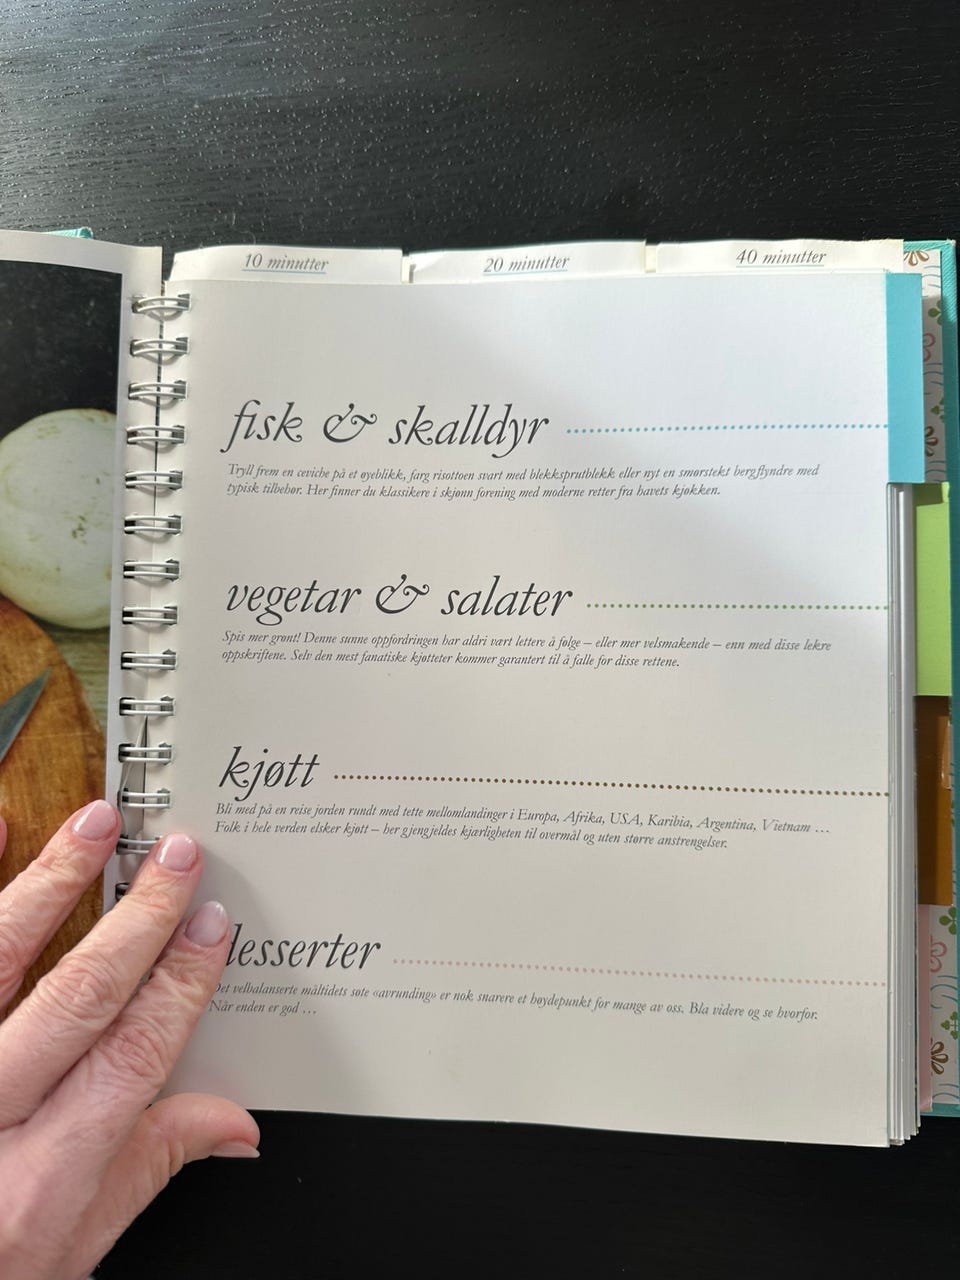 10 minutter
20 minutter
40 minutter
fisk & skalldyr
Tryll frem en ceviche på et øyeblikk, farg risottoen svart med blekksprutblekk eller nyt en smørstekt bergflyndre med
typisk tilbehør. Her finner du klassikere i skjønn forening med moderne retter fra havets kjøkken.
vegetar & salater
Spis mer grønt! Denne sunne oppfordringen har aldri vært lettere å følge – eller mer velsmakende – enn med disse lekre
oppskriftene. Selv den mest fanatiske kjøtteter kommer garantert til å falle for disse rettene.
kjøtt
Bli med på en reise jorden rundt med tette mellomlandinger i Europa, Afrika, USA, Karibia, Argentina, Vietnam …
Folk i hele verden elsker kjøtt – her gjengjeldes kjærligheten til overmål og uten større anstrengelser.
desserter
Det velbalanserte måltidets søte «avrunding» er nok snarere et høydepunkt for mange av oss. Bla videre og se hvorfor.
Når enden er god …